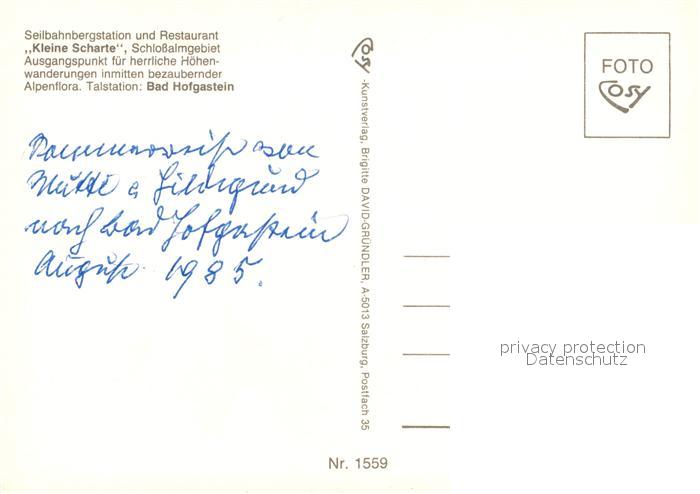 Seilbahnbergstation und Restaurant
„Kleine Scharte“, Schloßalmgebiet
Ausgangspunkt für herrliche Höhen-
wanderungen inmitten bezaubernder
Alpenflora. Talstation: Bad Hofgastein
von
Mutti
nach bad Hofgastein
August 1985.
Cosy -Kunstverlag, Brigitte DAVID-GRÜNDLER, A-5013 Salzburg, Postfach 35
FOTO
Cosy
privacy protection
Datenschutz
Nr. 1559